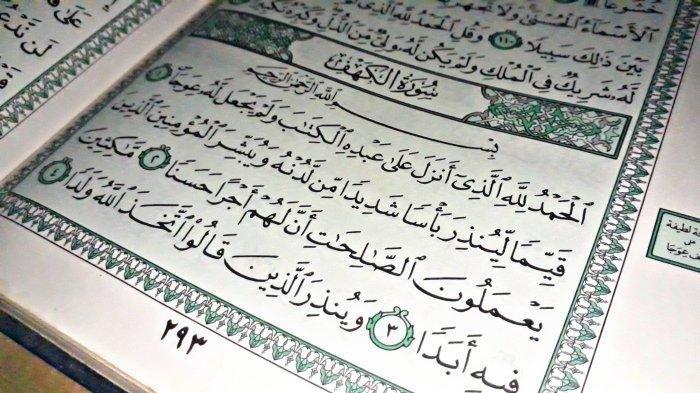 ٱلْأَسْمَآءُ ٱلْحُسْنَىٰ وَلَا تَجْهَرْ
بَيْنَ ذَٰلِكَ سَبِيلًا ١١٠ وَقُلِ ٱلْحَمْدُ لِلَّهِ ٱلَّذِى
لَّهُۥ شَرِيكٌ فِى ٱلْمُلْكِ وَلَمْ يَكُن لَّهُۥ وَلِىٌّ مِّنَ ٱلذُّلِّ وَكَبِّرْهُ
سُورَةُ ٱلْكَهْفِ
بِسْمِ ٱللَّهِ ٱلرَّحْمَٰنِ ٱلرَّحِيمِ
ٱلْحَمْدُ لِلَّهِ ٱلَّذِىٓ أَنزَلَ عَلَىٰ عَبْدِهِ ٱلْكِتَٰبَ وَلَمْ يَجْعَل لَّهُۥ عِوَجَا ١
قَيِّمًا لِّيُنذِرَ بَأْسًا شَدِيدًا مِّن لَّدُنْهُ وَيُبَشِّرَ ٱلْمُؤْمِنِينَ ٱلَّذِينَ
يَعْمَلُونَ ٱلصَّٰلِحَٰتِ أَنَّ لَهُمْ أَجْرًا حَسَنًا ٢ مَّٰكِثِينَ
فِيهِ أَبَدًا ٣ وَيُنذِرَ ٱلَّذِينَ قَالُوا۟ ٱتَّخَذَ ٱللَّهُ وَلَدًا ٤
٢٩٣
لطيفة